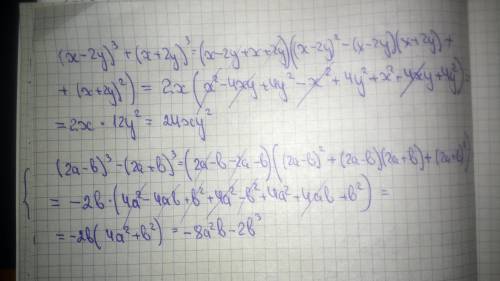 (x-2y)³ + (x+2y)³ = (x-2y+x+2y)((x-2y)² - (x-2y)(x+2y) +
+ (x+2y)²) = 2x(x² - 4xy + 4y² - x² + 4y² + x² + 4xy + 4y²) =
= 2x · 12y² = 24xy²
(2a-b)³ - (2a+b)³ = (2a-b-2a-b)((2a-b)² + (2a-b)(2a+b) + (2a+b)²)
= -2b · (4a² - 4ab + b² + 4a² - b² + 4a² + 4ab + b²) =
= -2b(4a² + b²) = -8a²b - 2b³